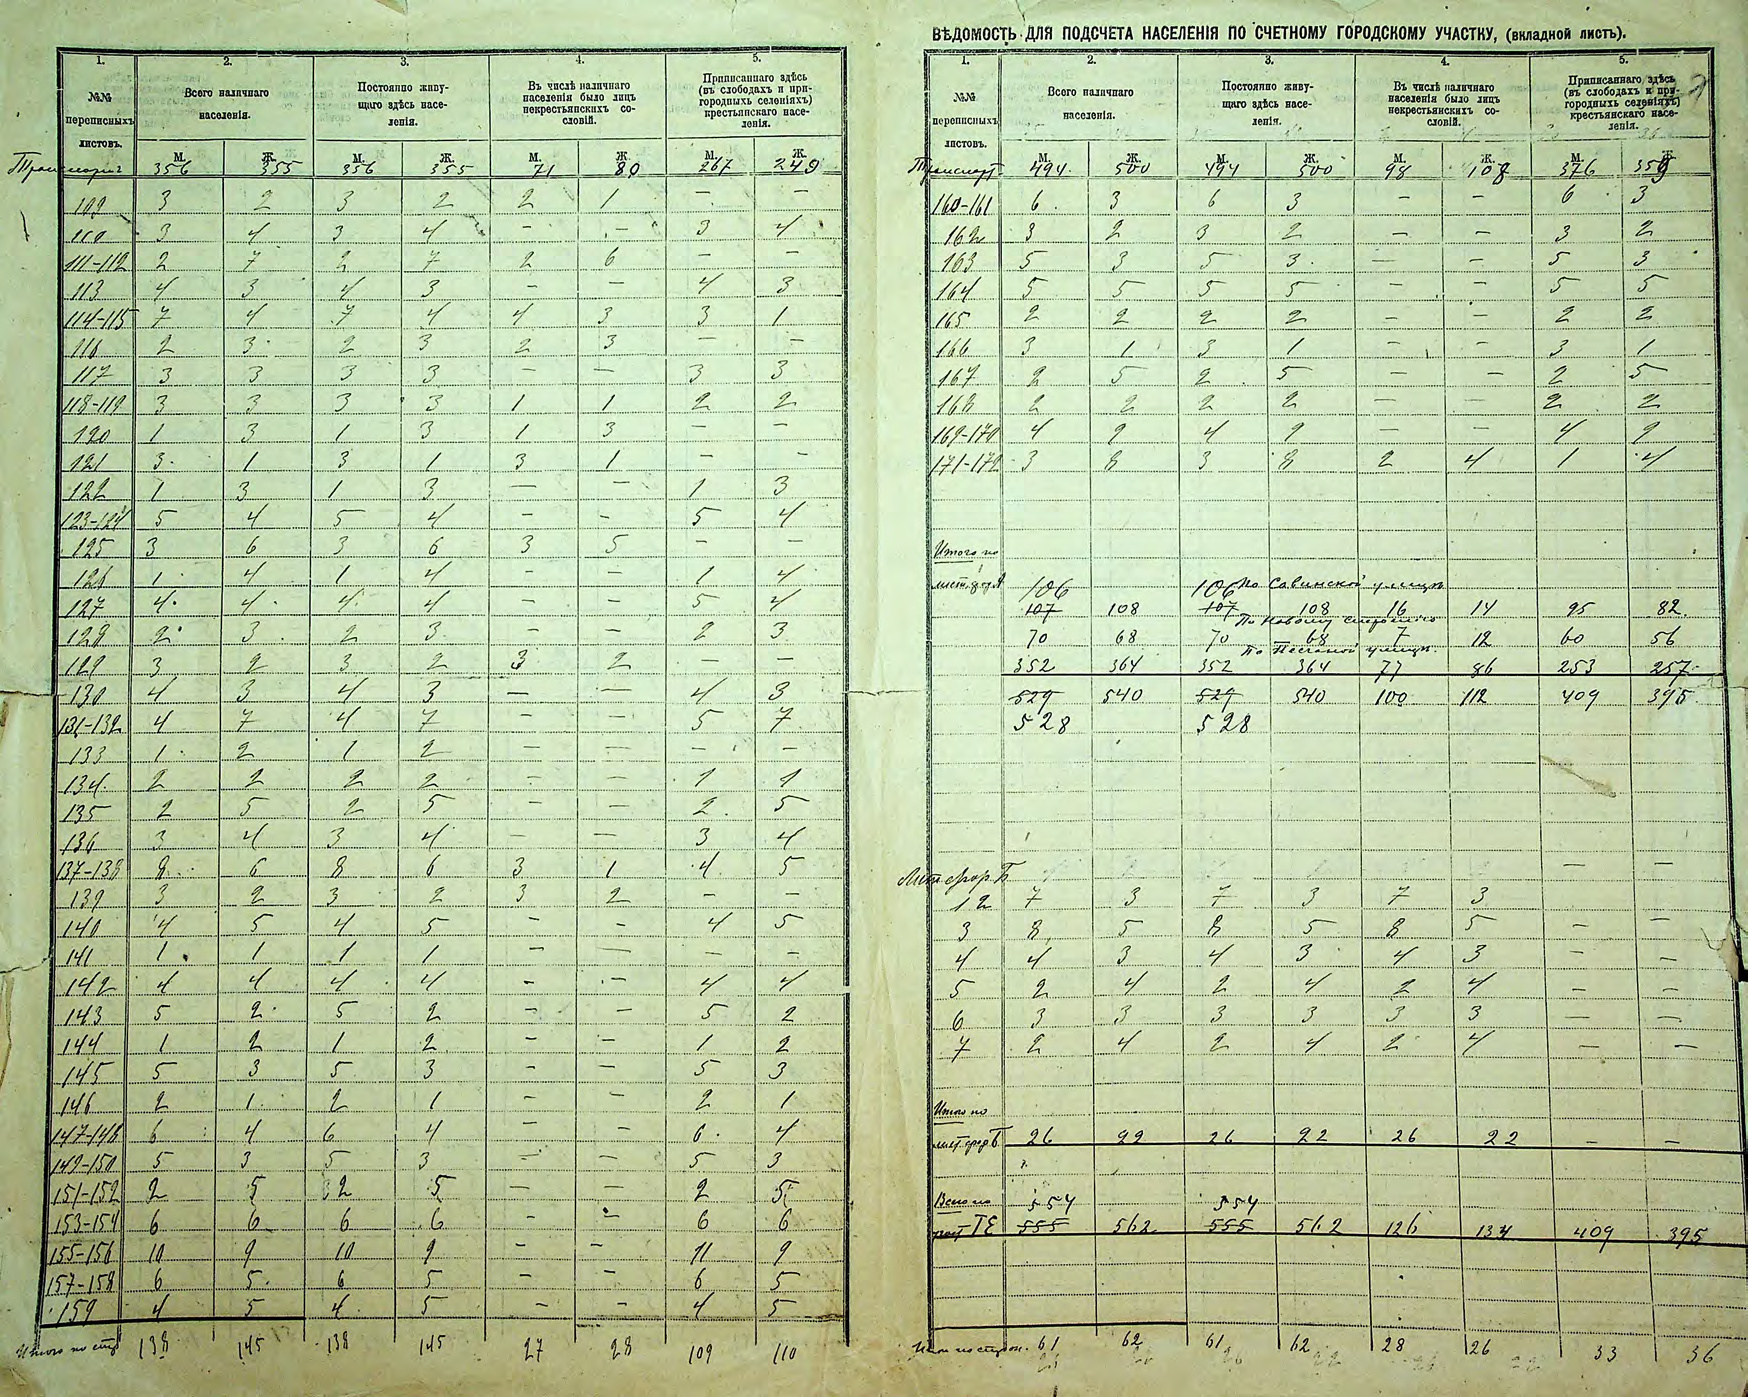 1. 2. 3. 4. 5.
№№ переписныхъ листовъ.
Всего наличнаго населенія.
Постоянно живущаго здѣсь населенія.
Въ числѣ наличнаго населенія было лицъ некрестьянскихъ сословій.
Приписаннаго здѣсь (въ слободахъ и пригородныхъ селеніяхъ) крестьянскаго населенія.
М. Ж. М. Ж. М. Ж. М. Ж.
Транспорт 356 355 356 355 71 80 267 249
109 3 2 3 2 2 1 — —
110 3 4 3 4 — — 3 4
111-112 2 7 2 7 2 6 — —
113 4 3 4 3 — — 4 3
114-115 7 4 7 4 4 3 3 1
116 2 3 2 3 2 3 — —
117 3 3 3 3 — — 3 3
118-119 3 3 3 3 1 1 2 2
120 1 3 1 3 1 3 — —
121 3 1 3 1 3 1 — —
122 1 3 1 3 — — 1 3
123-124 5 4 5 4 — — 5 4
125 3 6 3 6 3 5 — —
126 1 4 1 4 — — 1 4
127 4 4 4 4 — — 5 4
128 2 3 2 3 — — 2 3
129 3 2 3 2 3 2 — —
130 4 3 4 3 — — 4 3
131-132 4 7 4 7 — — 5 7
133 1 2 1 2 — — — —
134 2 2 2 2 — — 1 1
135 2 5 2 5 — — 2 5
136 3 4 3 4 — — 3 4
137-138 8 6 8 6 3 1 4 5
139 3 2 3 2 3 2 — —
140 4 5 4 5 — — 4 5
141 1 1 1 1 — — — —
142 4 4 4 4 — — 4 4
143 5 2 5 2 — — 5 2
144 1 2 1 2 — — 1 2
145 5 3 5 3 — — 5 3
146 2 1 2 1 — — 2 1
147-148 6 4 6 4 — — 6 4
149-150 5 3 5 3 — — 5 3
151-152 2 5 2 5 — — 2 5
153-154 6 6 6 6 — — 6 6
155-156 10 9 10 9 — — 11 9
157-158 6 5 6 5 — — 6 5
159 4 5 4 5 — — 4 5
Итого по стр 138 145 138 145 27 28 109 110
ВѢДОМОСТЬ ДЛЯ ПОДСЧЕТА НАСЕЛЕНІЯ ПО СЧЕТНОМУ ГОРОДСКОМУ УЧАСТКУ, (вкладной листъ).
1. 2. 3. 4. 5.
№№ переписныхъ листовъ.
Всего наличнаго населенія.
Постоянно живущаго здѣсь населенія.
Въ числѣ наличнаго населенія было лицъ некрестьянскихъ сословій.
Приписаннаго здѣсь (въ слободахъ и пригородныхъ селеніяхъ) крестьянскаго населенія.
М. Ж. М. Ж. М. Ж. М. Ж.
Транспорт 494 500 494 500 98 108 376 359
160-161 6 3 6 3 — — 6 3
162 3 2 3 2 — — 3 2
163 5 3 5 3 — — 5 3
164 5 5 5 5 — — 5 5
165 2 2 2 2 — — 2 2
166 3 1 3 1 — — 3 1
167 2 5 2 5 — — 2 5
168 2 2 2 2 — — 2 2
169-170 4 9 4 9 — — 4 9
171-172 3 8 3 8 2 4 1 4
Итого по
лист. фор. А 106 106 по Савинской улицѣ
107 108 107 108 16 14 95 82
По Новому
70 68 70 68 7 12 60 56
По Песчаной улицѣ
352 364 352 364 77 86 253 257
529 540 529 540 100 112 409 395
528 528
Лист. фор. Б — —
1 2 7 3 7 3 7 3
3 8 5 8 5 8 5 — —
4 4 3 4 3 4 3 — —
5 2 4 2 4 2 4 — —
6 3 3 3 3 3 3 — —
7 2 4 2 4 2 4 — —
Итого по
лист. фор. Б 26 22 26 22 26 22 — —
Всего по 554 554
555 562 555 562 126 134 409 395
Итого по стран. 61 62 61 62 28 26 33 36